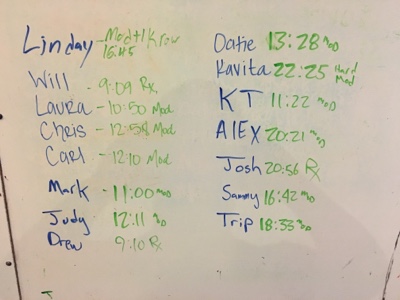 Linday - Mod +1 K row
16:45
Will - 9:09 Rx
Laura - 10:50 Mod
Chris - 12:58 Mod
Carl - 12:10 Mod
Mark - 11:00 MOD
Judy 12:11
Drew 9:10 Rx
13:28 MOD
Kavita 22:25 Hard Mod
KT 11:22 MOD
AlEX 20:21 MOD
Josh 20:56 Rx
Sammy 16:42 MOD
Trip 18:33 MOD